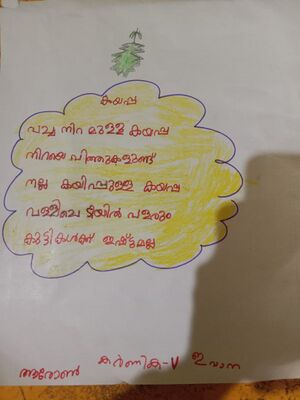 കയപ്പ
പച്ച നിറ മുള്ള കയപ്പ
നിറയെ വിത്തുകളുണ്ട്
നല്ല കയിപ്പുള്ള കയപ്പ
വള്ളിലെ യിൽ പടരും
കുട്ടികൾക്ക് ഇഷ്ടമല്ല
കർണിക-V ഇവാന
ആരോൺ